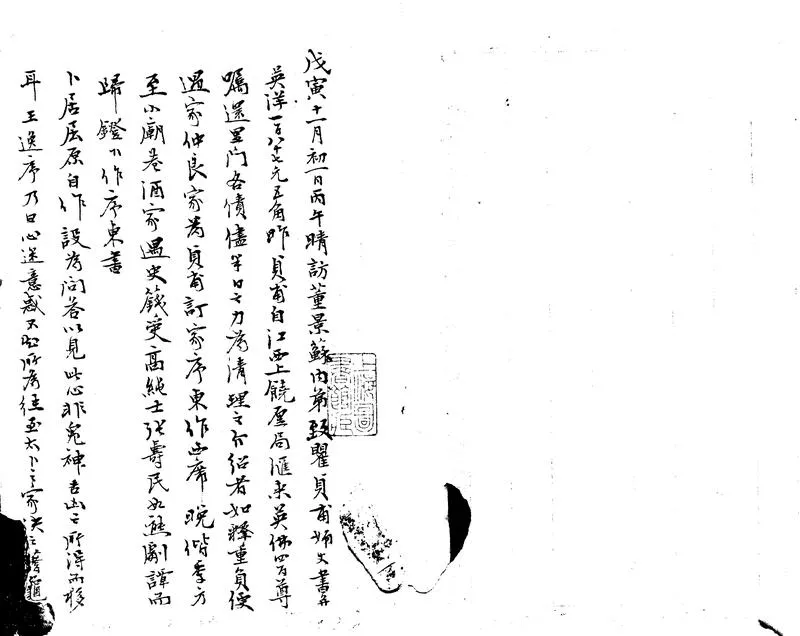 戊寅十一月初一日丙午晴訪董景蘇内弟致瞿貞甫姊丈書并
英洋一百八十七元五角昨貞甫自江西上饒厘局滙来英佛四百尊
囑還里门各債儘半日之力為清理之不啻如釋重負便
過家仲良家為貞甫訂家序東作西席晚偕季方
至小廟巷酒家遇史籛叟高純士張壽民如熊劇譚而
歸鐙下作序東書
卜居屈原自作設為问答以見此心非鬼神吉凶之所得而移
耳王逸序乃曰心迷意惑不知所為往至太卜之家决之蓍龜